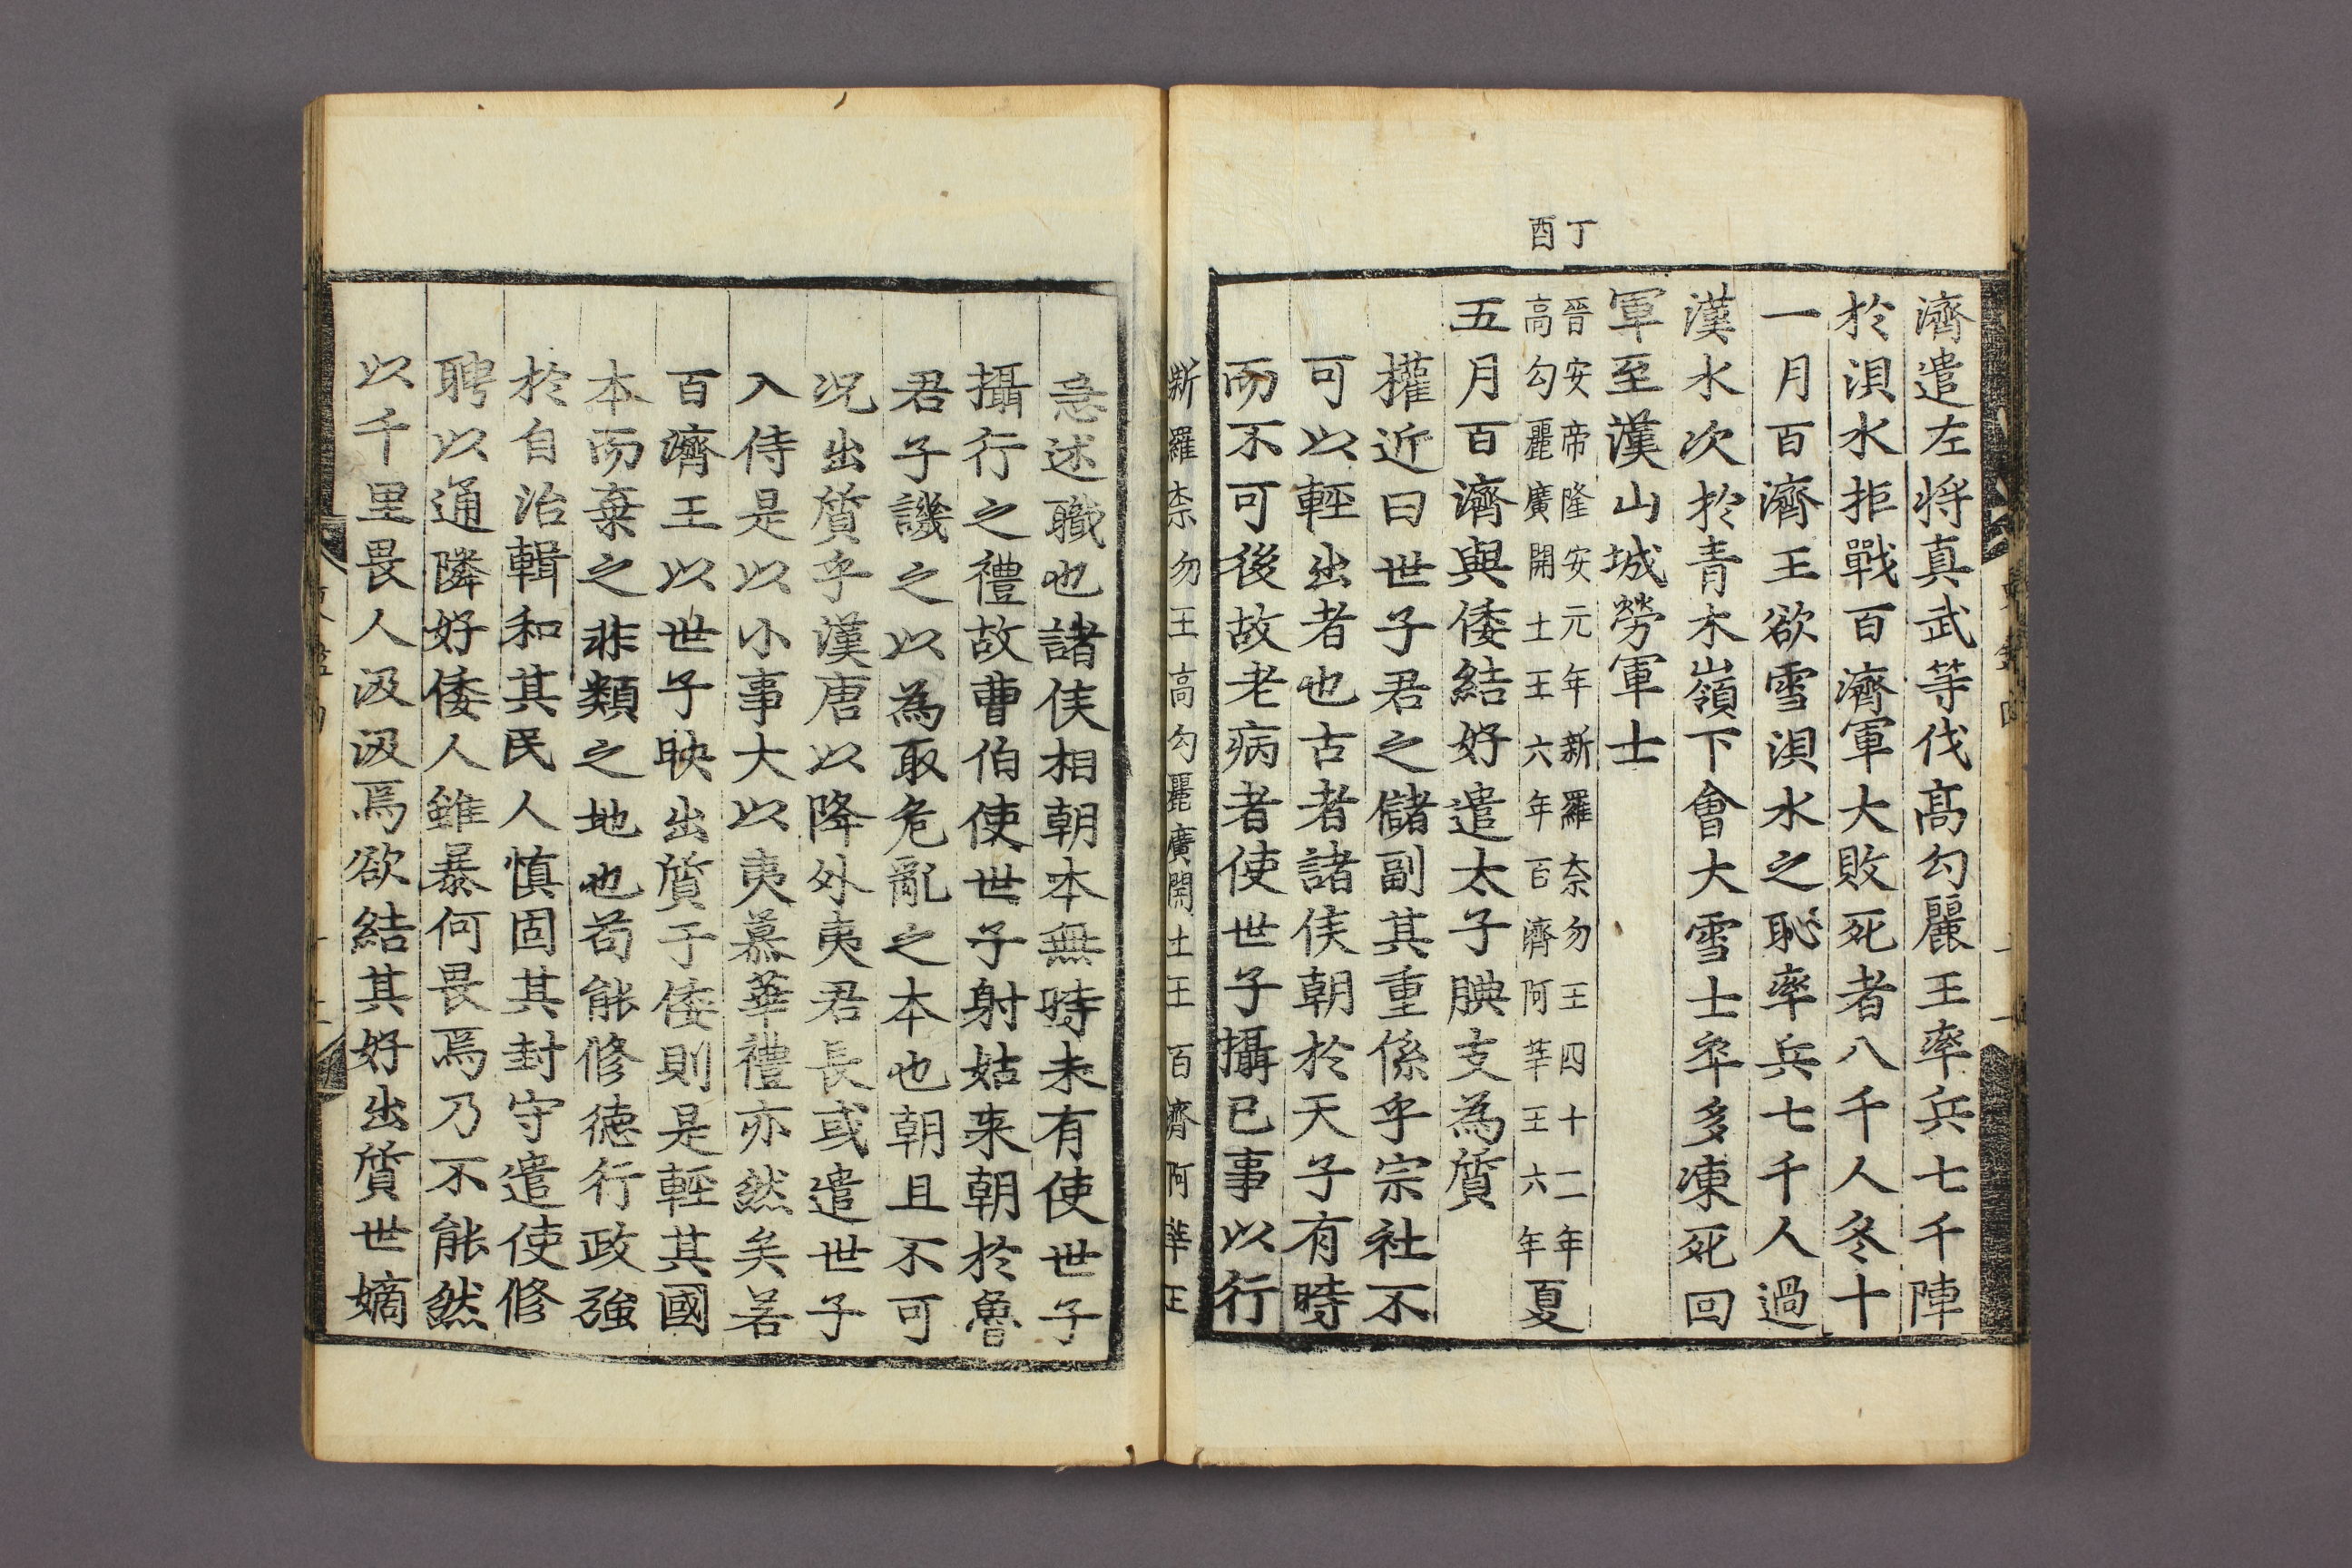 濟遣左將真武等伐髙勾麗王率兵七千陣
於浿水拒戰百濟軍大敗死者八千人冬十
一月百濟王欲雪浿水之恥率兵七千人過
漢水次於青木嶺下會大雪士卒多凍死回
軍至漢山城勞軍士
丁酉
晉安帝隆安元年新羅奈勿王四十二年
高勾麗廣開土王六年百濟阿莘王六年
夏
五月百濟與倭結好遣太子腆支為質
權近曰世子君之儲副其重係乎宗社不
可以輕出者也古者諸侯朝於天子有時
而不可後故老病者使世子攝已事以行
新羅柰勿王高勾麗廣開土王百濟阿莘王
急述職也諸侯相朝本無時未有使世子
攝行之禮故曹伯使世子射姑来朝於魯
君子譏之以為取危亂之本也朝且不可
况出質乎漢唐以降外夷君長或遣世子
入侍是以小事大以夷慕華禮亦然矣若
百濟王以世子映出質于倭則是輕其國
本而棄之非類之地也苟能修德行政強
於自治輯和其民人慎固其封守遣使修
聘以通隣好倭人雖暴何畏焉乃不能然
以千里畏人汲汲焉欲結其好出質世嫡